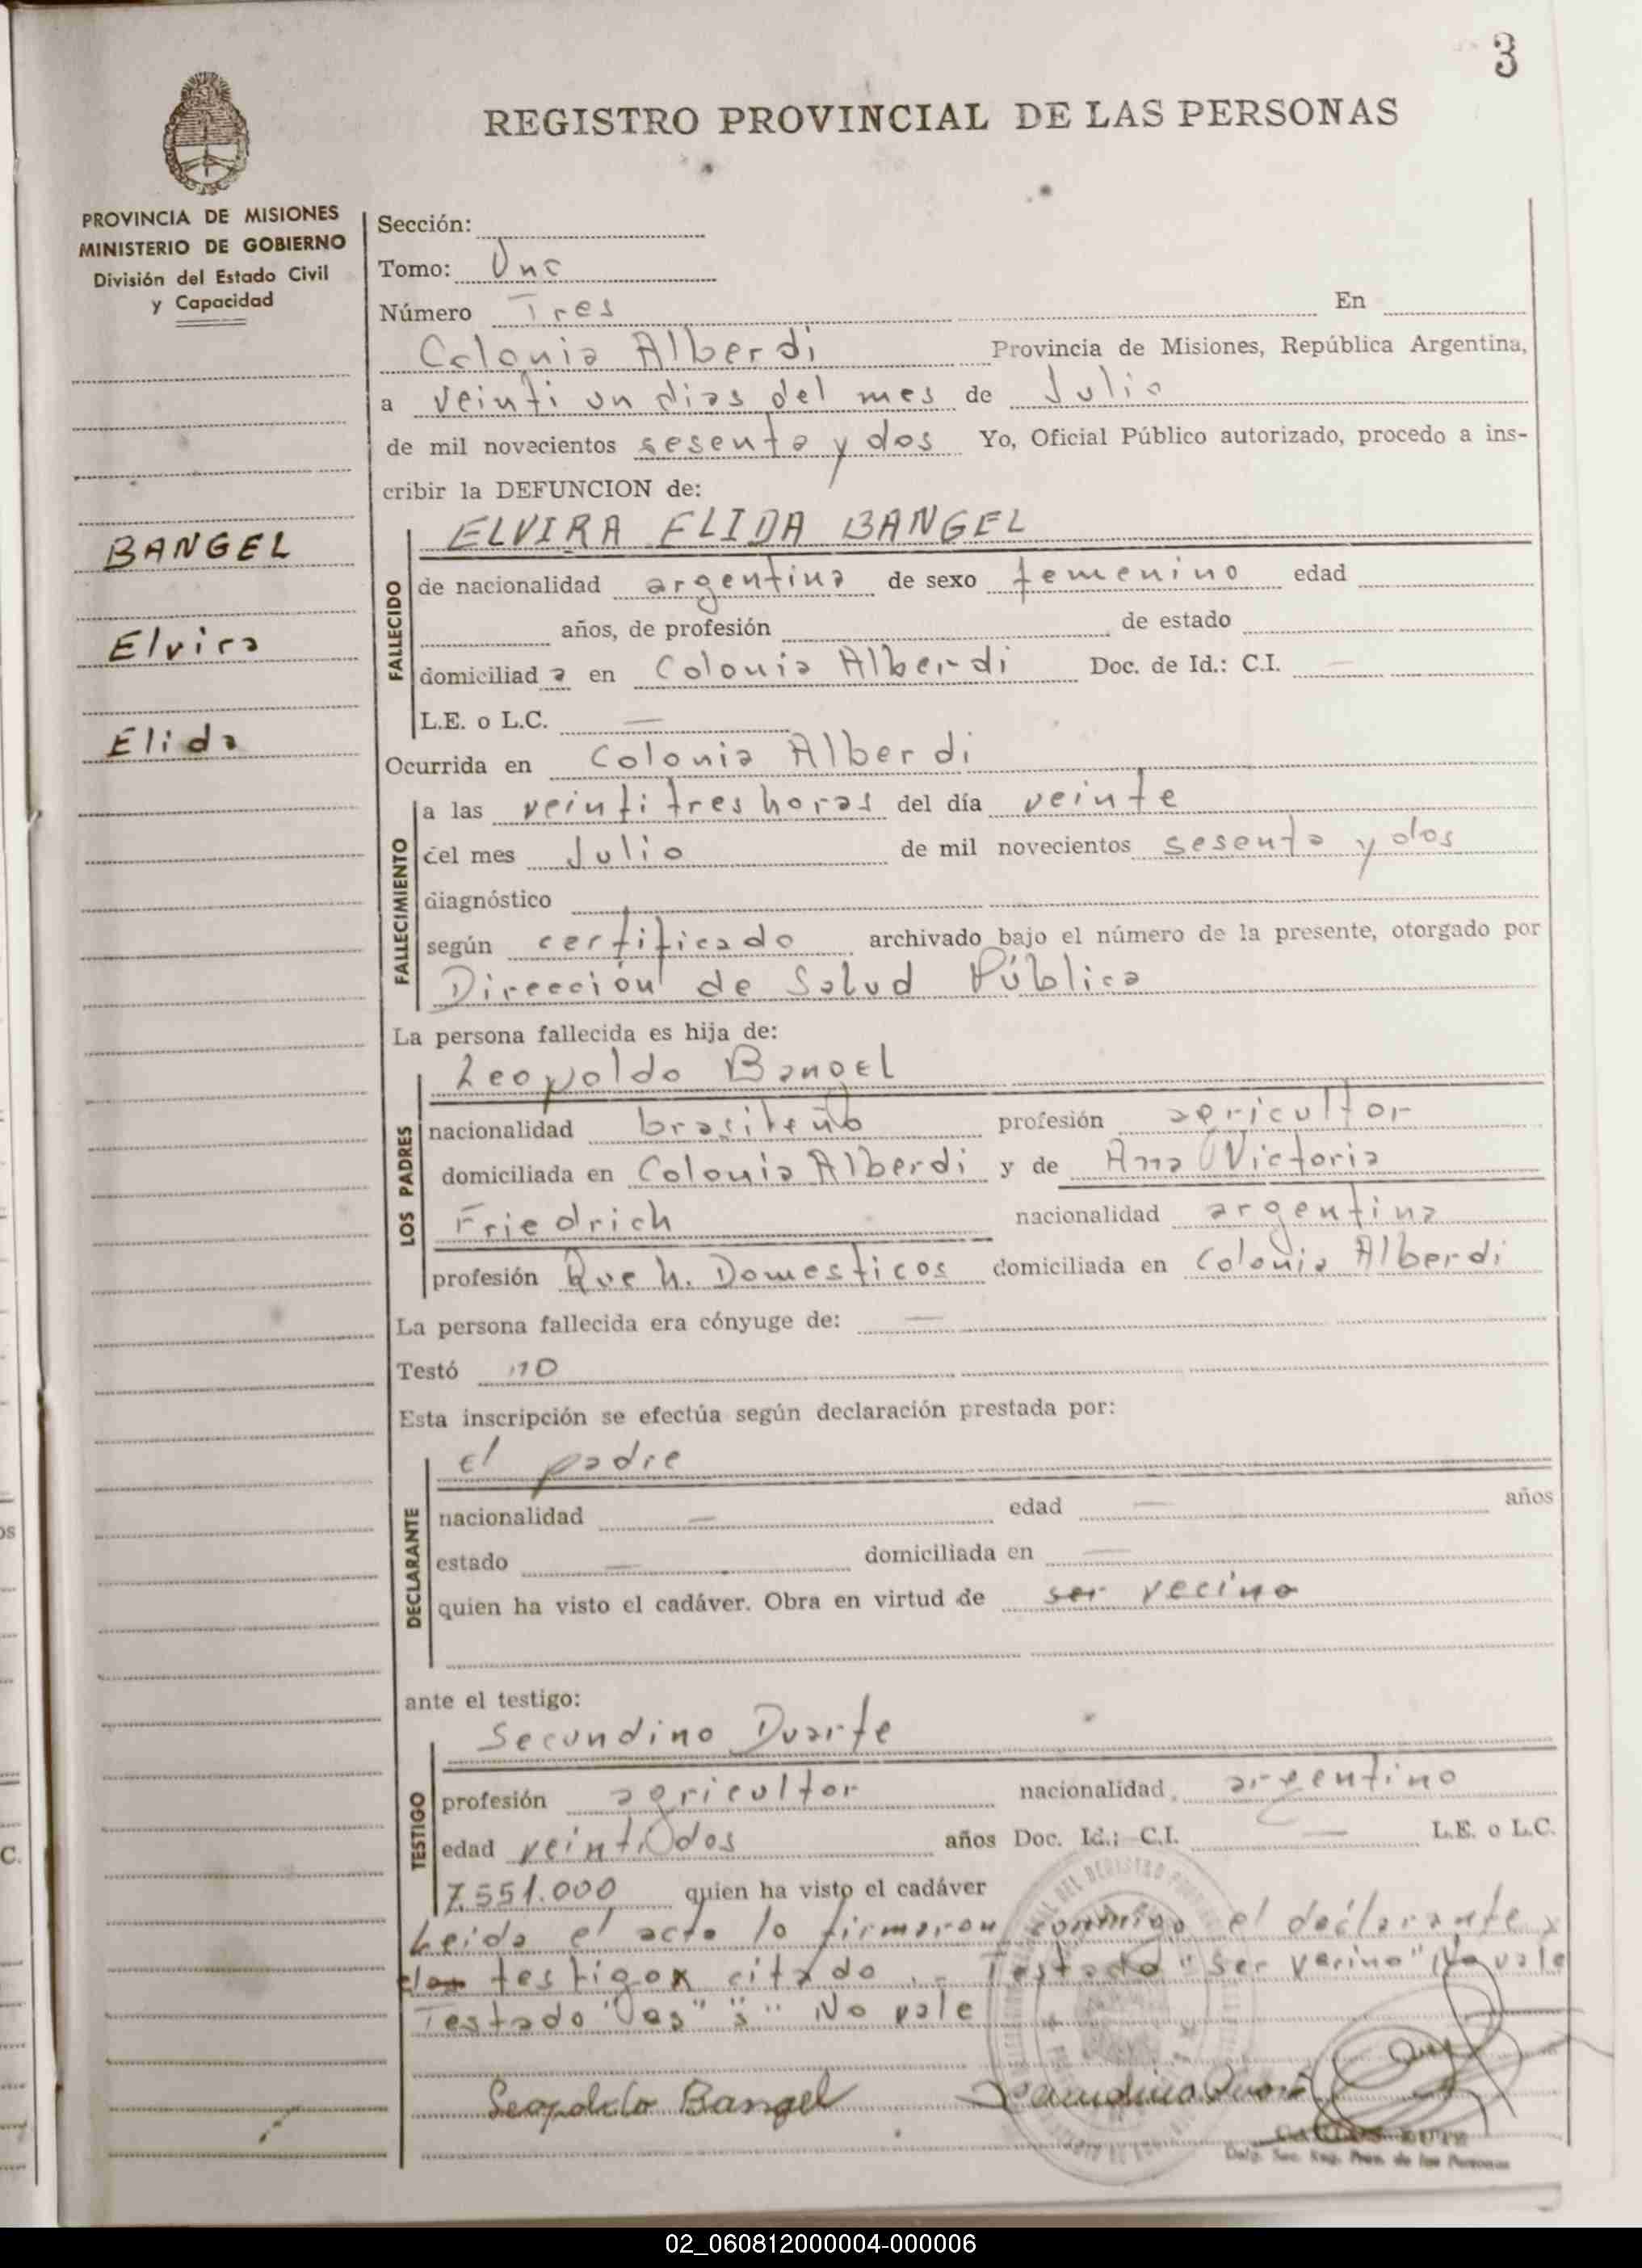 3
REGISTRO PROVINCIAL DE LAS PERSONAS
PROVINCIA DE MISIONES
MINISTERIO DE GOBIERNO
División del Estado Civil
y Capacidad
BANGEL
Elvira
Elida
Sección:
Tomo: Uno
Número Tres En
Colonia Alberdi Provincia de Misiones, República Argentina,
a veinti un dias del mes de Julio
de mil novecientos sesenta y dos Yo, Oficial Público autorizado, procedo a ins-
cribir la DEFUNCION de:
ELVIRA ELIDA BANGEL
FALLECIDO
de nacionalidad argentina de sexo femenino edad
años, de profesión de estado
domiciliad a en Colonia Alberdi Doc. de Id.: C.I. —
L.E. o L.C. —
Ocurrida en Colonia Alberdi
FALLECIMIENTO
a las veinti tres horas del día veinte
del mes Julio de mil novecientos sesenta y dos
diagnóstico
según certificado archivado bajo el número de la presente, otorgado por
Dirección de Salud Pública
La persona fallecida es hija de:
LOS PADRES
Leopoldo Bangel
nacionalidad brasileño profesión agricultor
domiciliada en Colonia Alberdi y de Ana Victoria
Friedrich nacionalidad argentina
profesión Que h. Domesticos domiciliada en Colonia Alberdi
La persona fallecida era cónyuge de: —
Testó no
Esta inscripción se efectúa según declaración prestada por:
DECLARANTE
el padre
nacionalidad — edad — años
estado — domiciliada en —
quien ha visto el cadáver. Obra en virtud de ser vecino
ante el testigo:
TESTIGO
Secundino Duarte
profesión agricultor nacionalidad argentino
edad veintidos años Doc. Id.: C.I. — L.E. o L.C.
7.551.000 quien ha visto el cadáver
Leida el acto lo firmaron conmigo el declarante y
testigo citado.- Testado "ser vecino" No vale
Testado "os" "s" No vale
Leopoldo Bangel
Delg. Sec. Reg. Prov. de las Personas
02_060812000004-000006